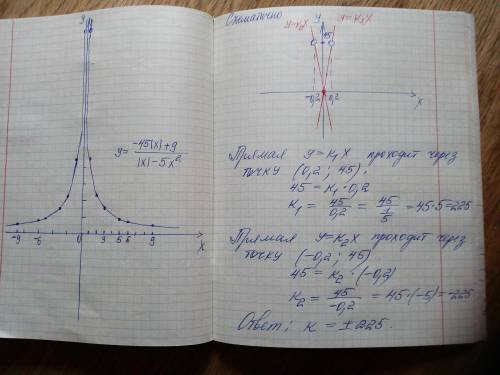 y
y = (-45|x|+9)/(|x|-5x²)
-9 -6 0 3 5 6 9 X
Схематично
y=k₂x y y=k₁x
45
-0,2 0,2 X
Прямая y=k₁x проходит через
точку (0,2; 45).
45 = k₁·0,2
k₁ = 45/0,2 = 45/(1/5) = 45·5=225
Прямая y=k₂x проходит через
точку (-0,2; 45).
45 = k₂·(-0,2)
k₂ = 45/-0,2 = 45·(-5)=-225
Ответ: k = ±225.